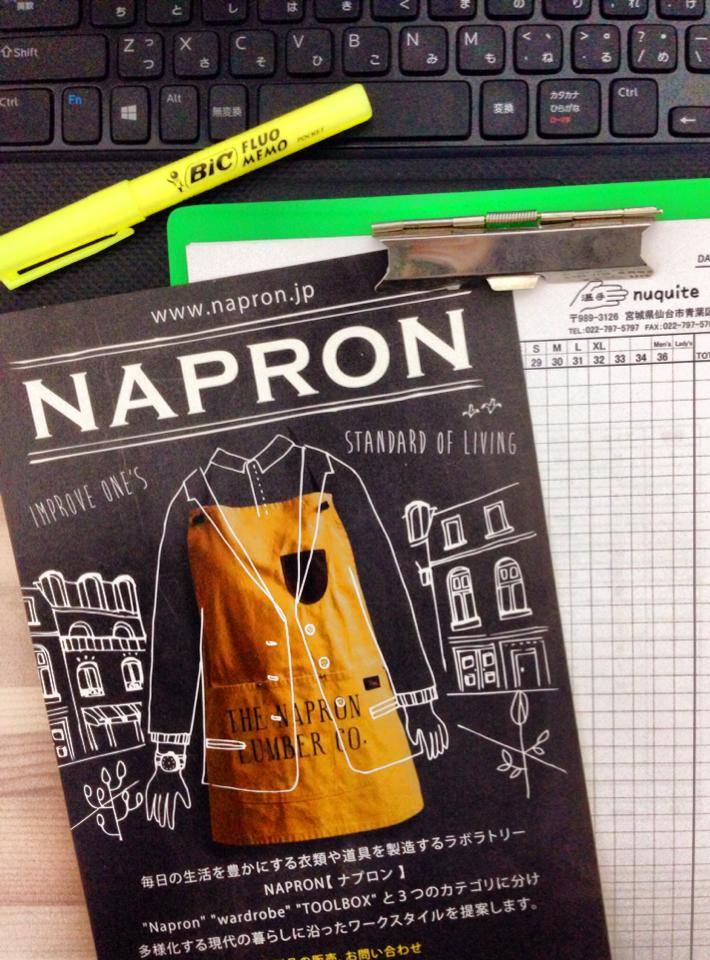 英数
ち
と
し
は
き
く
ま
の
り
れ
け
Shift
Z っ つ
X さ
C そ
V ひ
B こ
N み
M も
< 、 , ね
> 。 . る
? ・ / め
Ctrl
Fn
Alt
無変換
変換
カタカナ
ひらがな
ローマ字
Ctrl
←
BIC FLUO MEMO POCKET
温手 nuquite
〒989-3126 宮城県仙台市青葉区
TEL:022-797-5797 FAX:022-797-57
S M L XL Men's Lady's
29 30 31 32 33 34 36
www.napron.jp
NAPRON
IMPROVE ONE'S STANDARD OF LIVING
THE NAPRON
LUMBER CO.
毎日の生活を豊かにする衣類や道具を製造するラボラトリー
NAPRON【 ナプロン 】
"Napron" "wardrobe" "TOOLBOX" と３つのカテゴリに分け
多様化する現代の暮らしに沿ったワークスタイルを提案します。
の販売、お問い合わせ